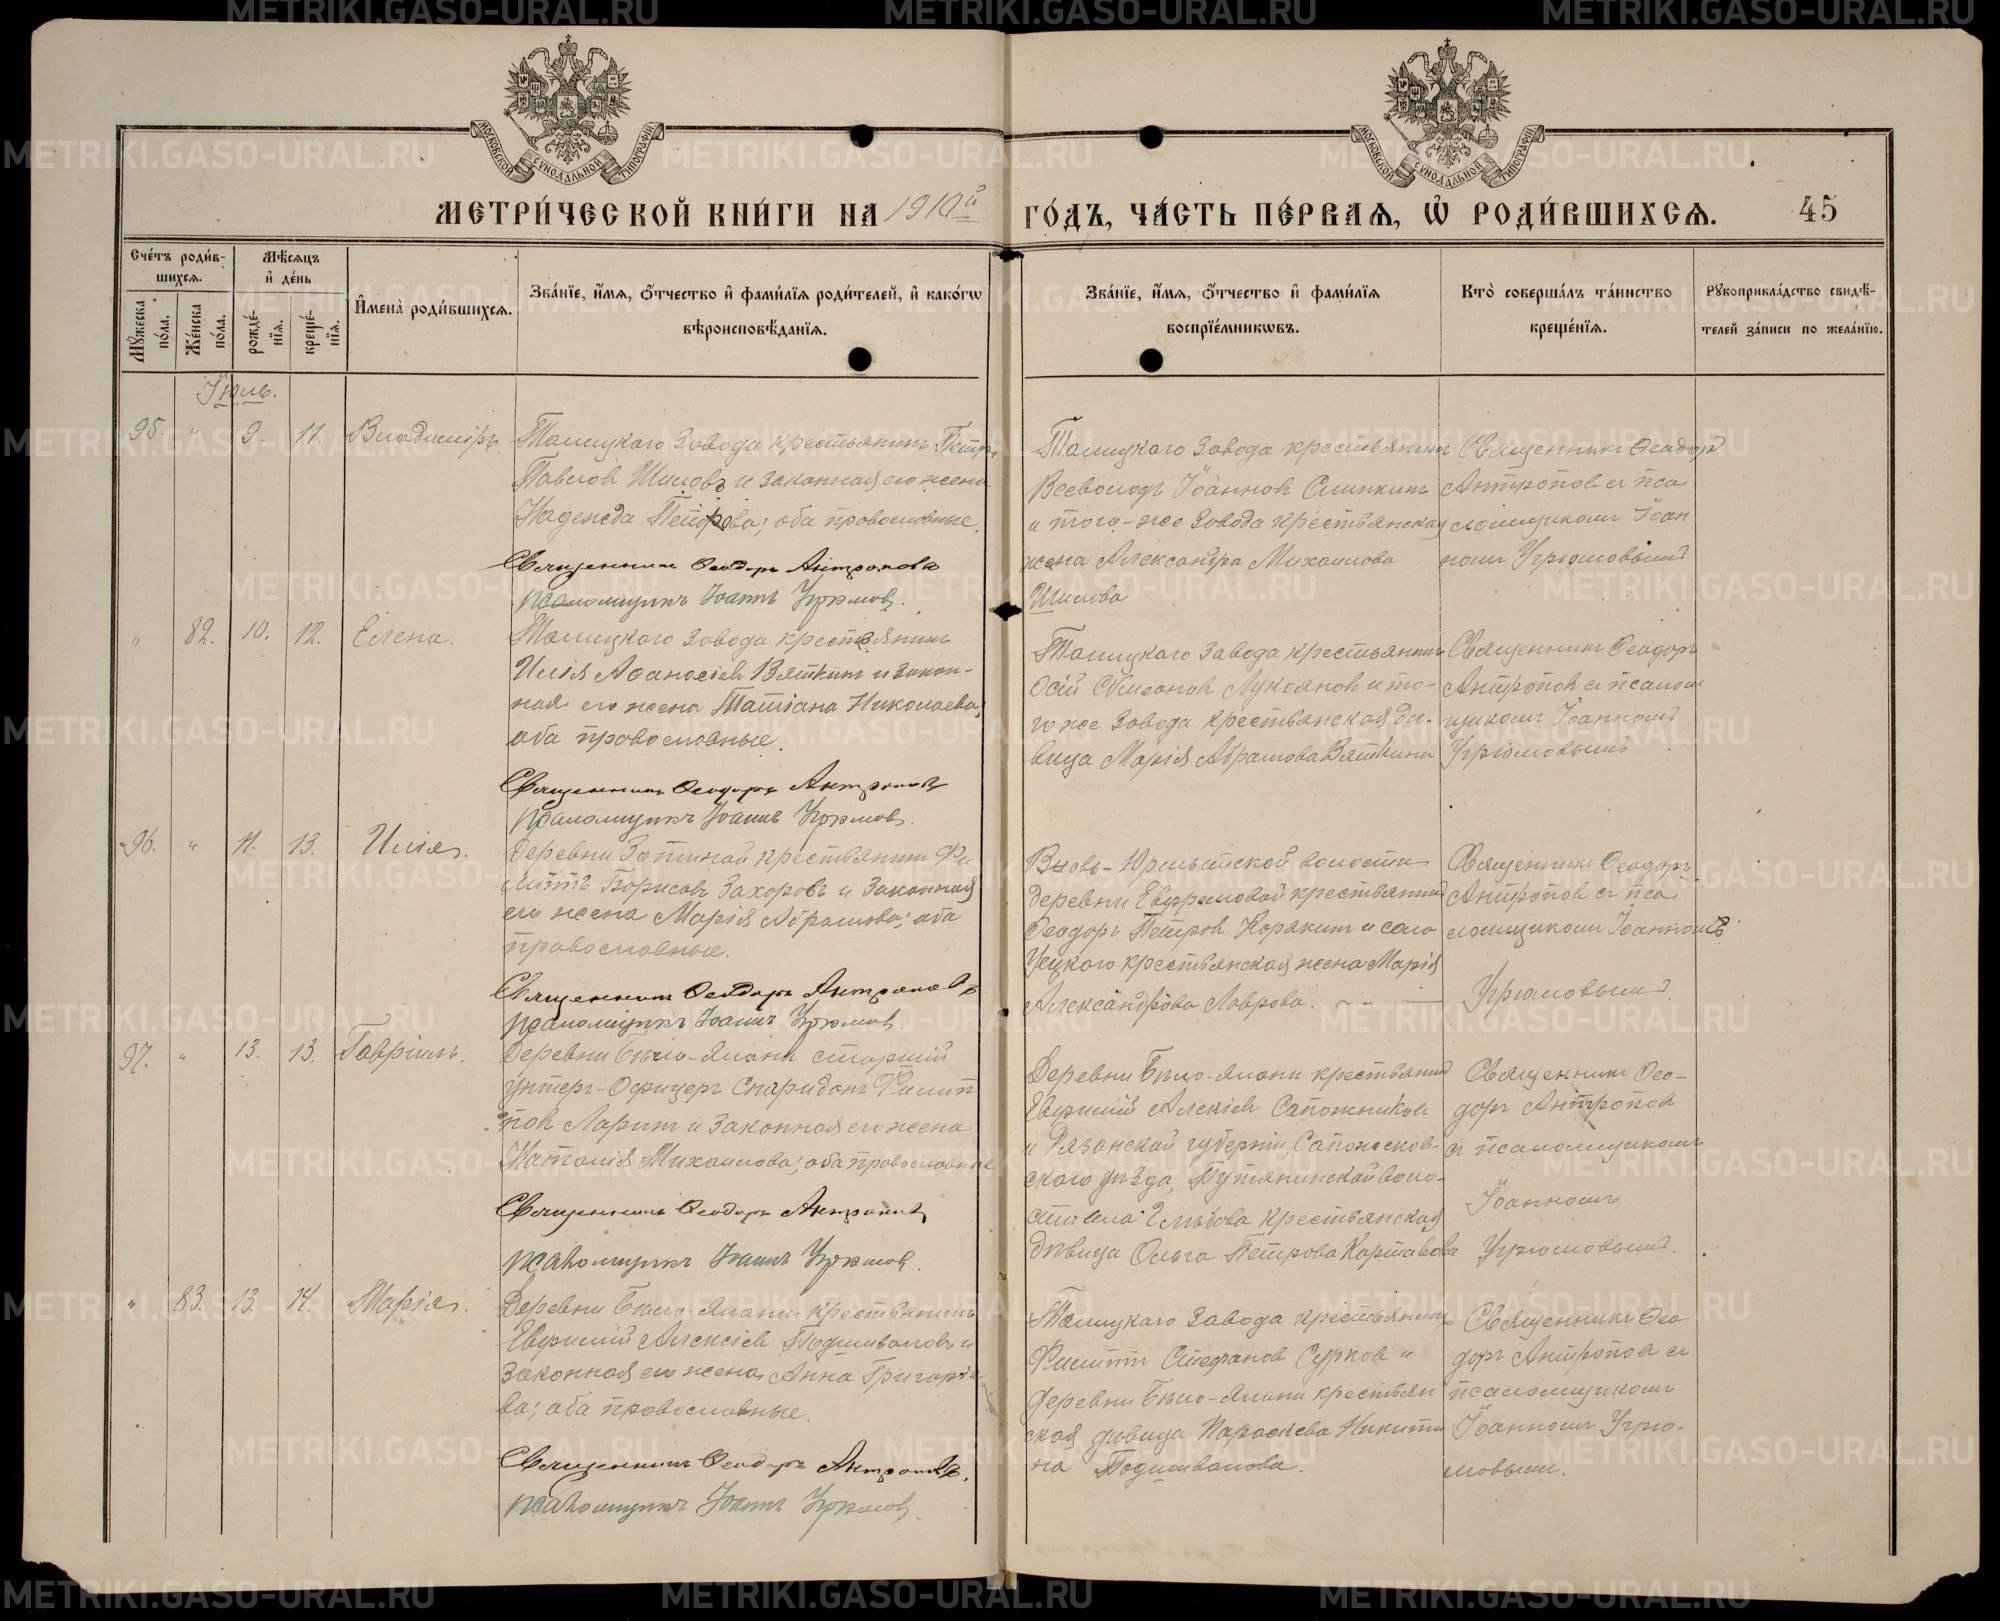 МЕТРИ́ЧЕСКОЙ КНИ́ГИ НА 1910й
ГО́ДЪ, ЧА́СТЬ ПЕ́РВАЯ, Ѡ҆ РОДИ́ВШИХСЯ. 45
Сче́тъ роди́в-
шихся.
Мꙋ́жеска
по́ла.
Же́нска
по́ла.
Мѣ́сяцъ
и҆ де́нь
рожде́-
нїя.
креще́-
нїя.
И҆мена̀ роди́вшихся.
Зва́нїе, и҆́мя, ѻ҆́тчество и҆ фами́лїя роди́телей, и҆ како́гѡ
вѣроисповѣ́данїя.
Зва́нїе, и҆́мя, ѻ҆́тчество и҆ фами́лїя
воспрїе́мникѡвъ.
Кто̀ соверша́лъ та́инство
креще́нїя.
Рꙋкоприкла́дство свидѣ́-
телей за́писи по жела́нїю.
Іюль.
95. " 9. 11. Владиміръ.
Талицкаго завода крестьянинъ Петръ
Павловъ Шиловъ и законная его жена
Надежда Петрова; оба православные.
Священникъ Ѳеодоръ Антроповъ
псаломщикъ Іоаннъ Угрюмовъ.
Талицкаго завода крестьянинъ
Всеволодъ Іоанновъ
и того-же завода крестьянская
жена Александра Михаилова
Шилова
Священникъ Ѳеодоръ
Антроповъ съ пса
ломщикомъ Іоан
номъ Угрюмовымъ
" 82. 10. 12. Елена.
Талицкаго завода крестьянинъ
Илія Аѳанасіевъ Вяткинъ и закон-
ная его жена Татіана Николаева;
оба православные.
Священникъ Ѳеодоръ Антроповъ
псаломщикъ Іоаннъ Угрюмовъ.
Талицкаго завода крестьянинъ
Осій Сѵмеоновъ Лукояновъ и то-
го же завода крестьянская дѣ-
вица Марія Абрамова Вяткина
Священникъ Ѳеодоръ
Антроповъ съ псалом
щикомъ Іоанномъ
Угрюмовымъ
96. " 11. 13. Илія.
Деревни Зотиной крестьянинъ Фи
липпъ Борисовъ Захаровъ и законная
его жена Марія Абрамова; оба
православные.
Священникъ Ѳеодоръ Антроповъ
псаломщикъ Іоаннъ Угрюмовъ.
Вновь-Юрмытской волости
деревни Евфимовой крестьянинъ
Ѳеодоръ Петровъ Корякинъ и села
Уецкаго крестьянская жена Марія
Александрова Лаврова.
Священникъ Ѳеодоръ
Антроповъ съ пса
ломщикомъ Іоанномъ
Угрюмовымъ.
97. " 13. 13. Гавріилъ.
Деревни Бѣло-Елани старшій
унтеръ-Офицеръ Спиридонъ Филип
повъ Ларинъ и законная его жена
Наталія Михаилова; оба православные
Священникъ Ѳеодоръ Антроповъ
псаломщикъ Іоаннъ Угрюмовъ.
Деревни Бѣло-Елани крестьянинъ
Евфимій Алексіевъ Сапожниковъ
и Рязанской губерніи, Сапожсков-
скаго уѣзда, Путятинской воло-
сти села Глѣбова крестьянская
дѣвица Ольга Петрова Карташова
Священникъ Ѳео-
доръ Антроповъ
съ псаломщикомъ
Іоанномъ
Угрюмовымъ.
" 83. 13. 14. Марія.
Деревни Бѣло-Елани крестьянинъ
Евфимій Алексіевъ Подшиваловъ и
законная его жена Анна Григорie
ва; оба православные.
Священникъ Ѳеодоръ Антроповъ.
псаломщикъ Іоаннъ Угрюмовъ.
Талицкаго завода крестьянинъ
Филиппъ Стефановъ Сурковъ и
деревни Бѣло-Елани крестьян
ская дѣвица Параскева Никити
на Подшивалова.
Священникъ Ѳео
доръ Антроповъ съ
псаломщикомъ
Іоанномъ Угрю-
мовымъ.